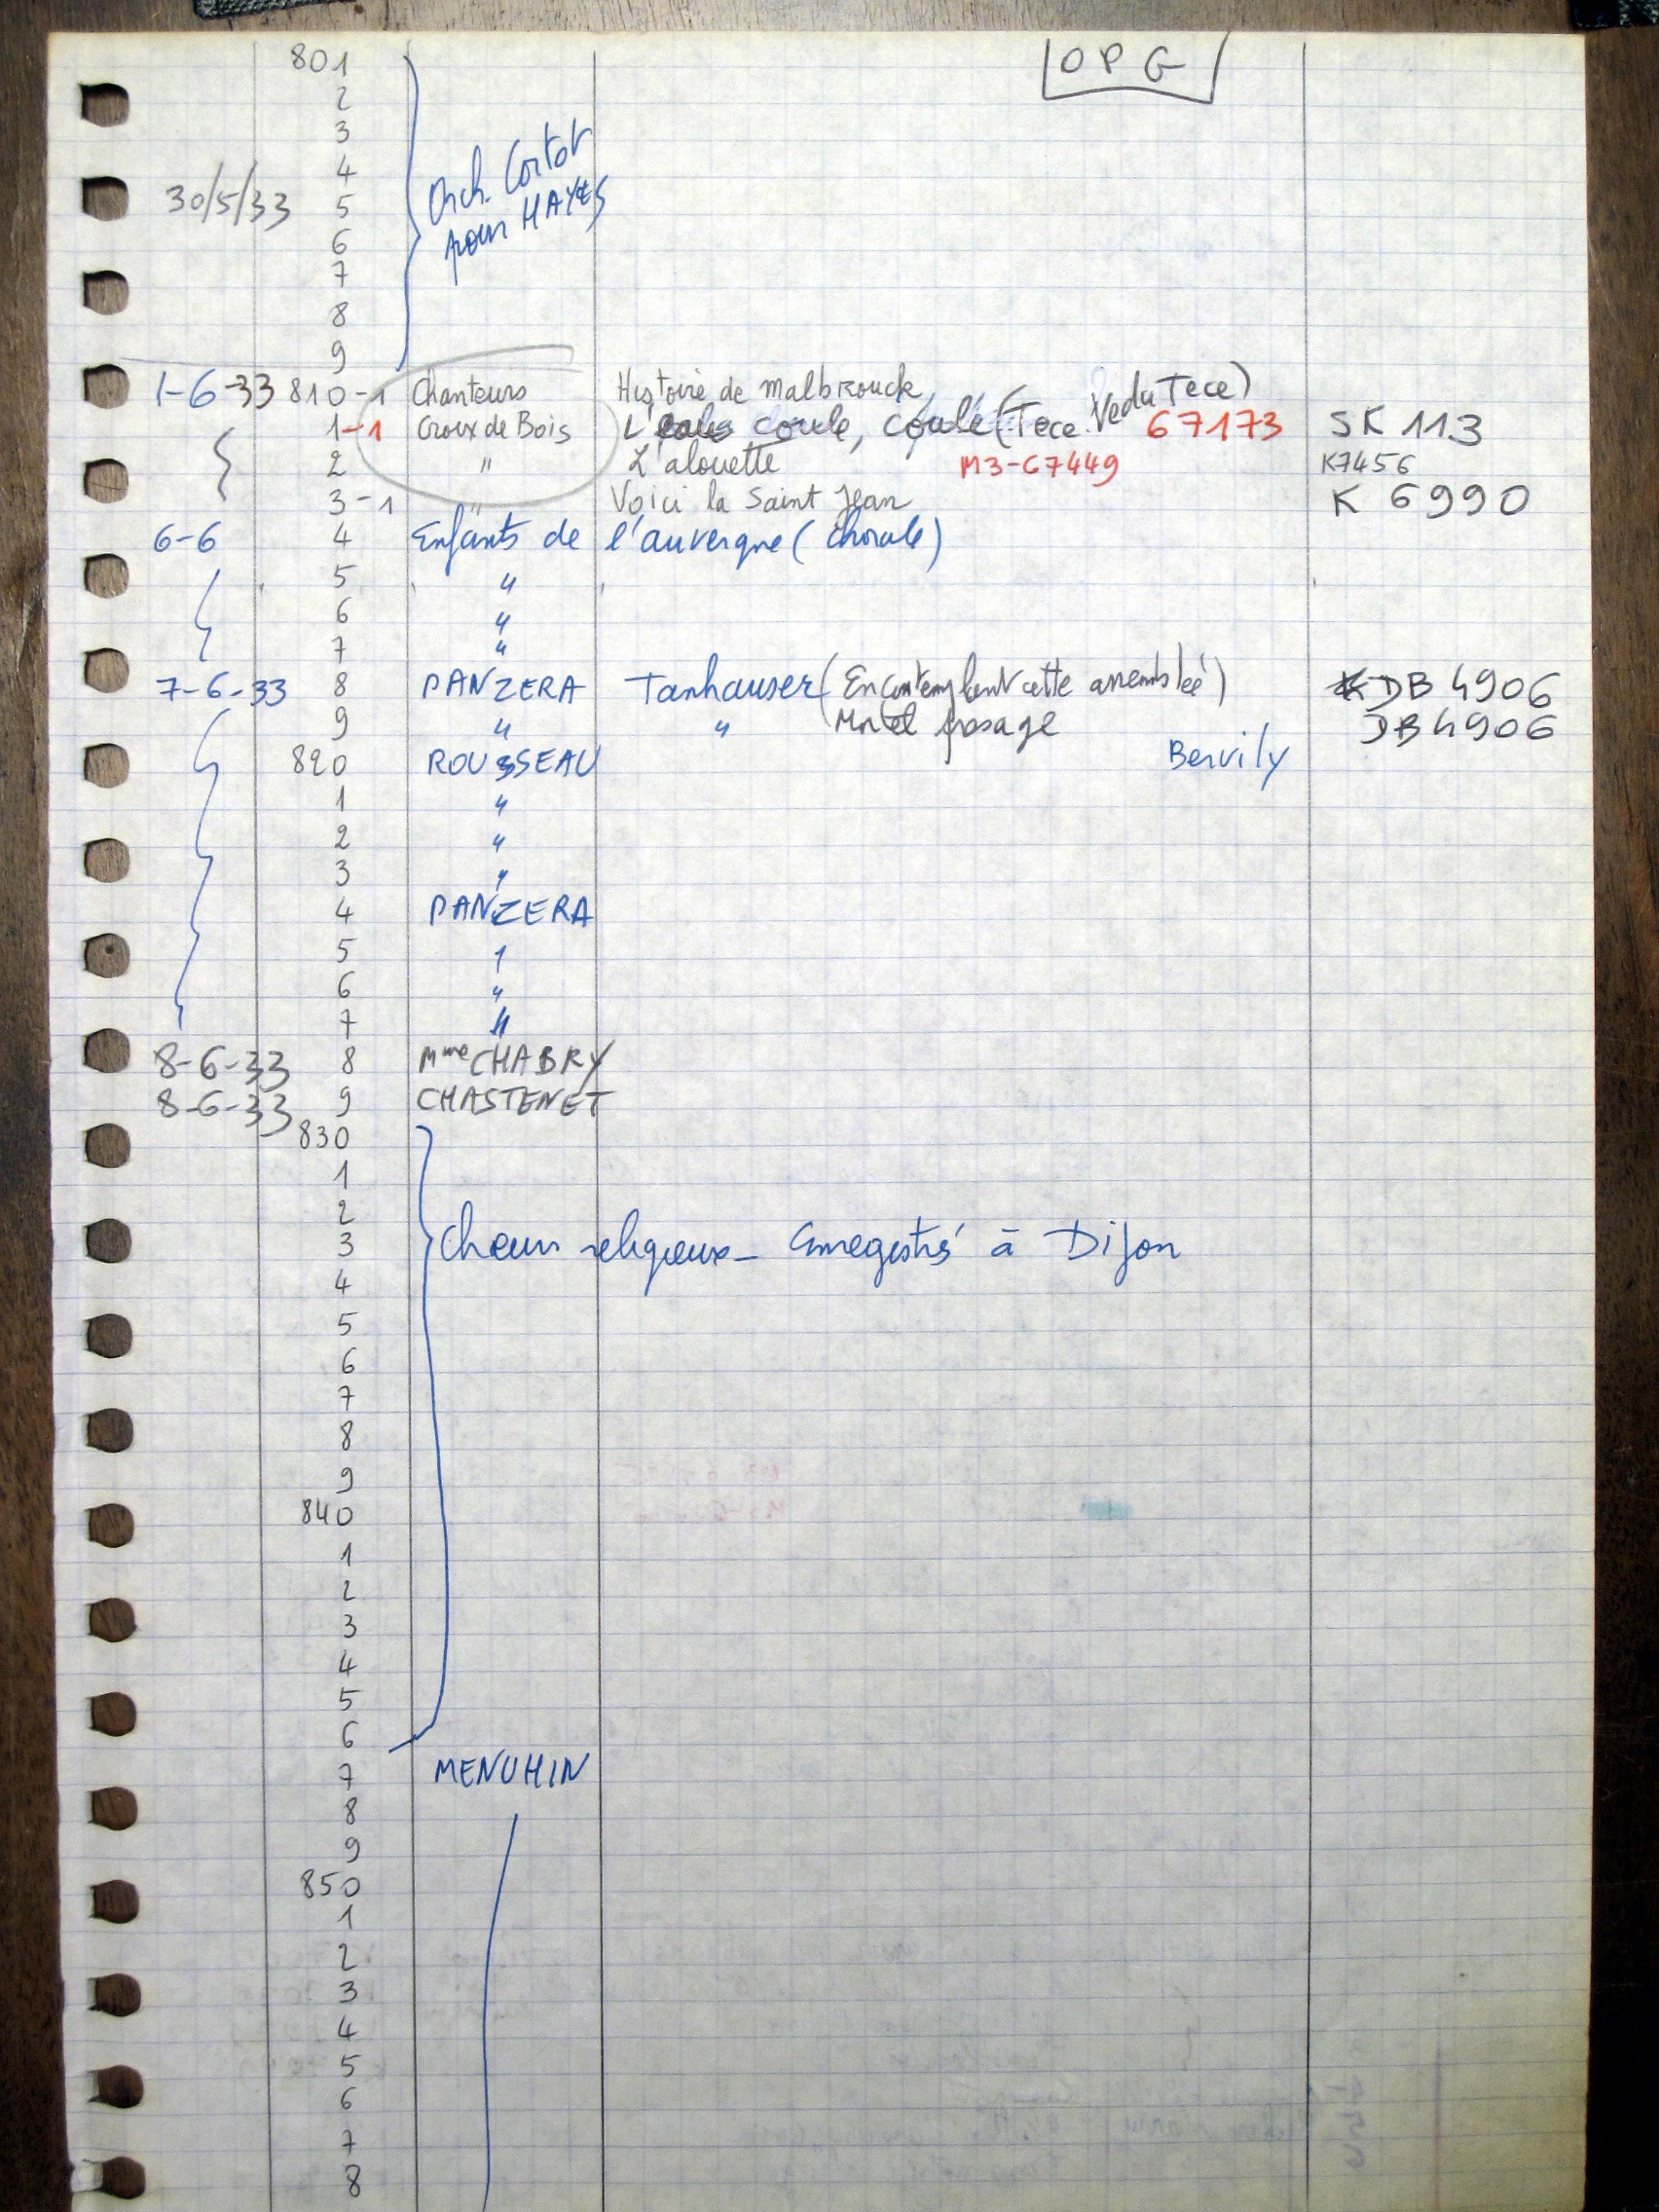 801 OPG
2
3
4 Orch. Cortot
30/5/33 5 pour HAYES
6
7
8
9
1-6-33 810-1 Chanteurs Histoire de Malbrouck
1-1 Croix de Bois L' coule, coule (Tece Veda Tece) 67173 SK 113
2 " L'alouette M3-67449 K7456
3-1 " Voici la Saint Jean K 6990
6-6 4 Enfants de l'auvergne (chorale)
5 "
6 "
7 "
7-6-33 8 PANZERA Tanhauser (En contemplant cette assemblée) DB 4906
9 " " DB 4906
820 ROUSSEAU Bervily
1 "
2 "
3 "
4 PANZERA
5 "
6 "
7 "
8-6-33 8 Mme CHABRY
8-6-33 9 CHASTENET
830
1
2
3 Choeur religieux - Enregistré à Dijon
4
5
6
7
8
9
840
1
2
3
4
5
6
7 MENUHIN
8
9
850
1
2
3
4
5
6
7
8